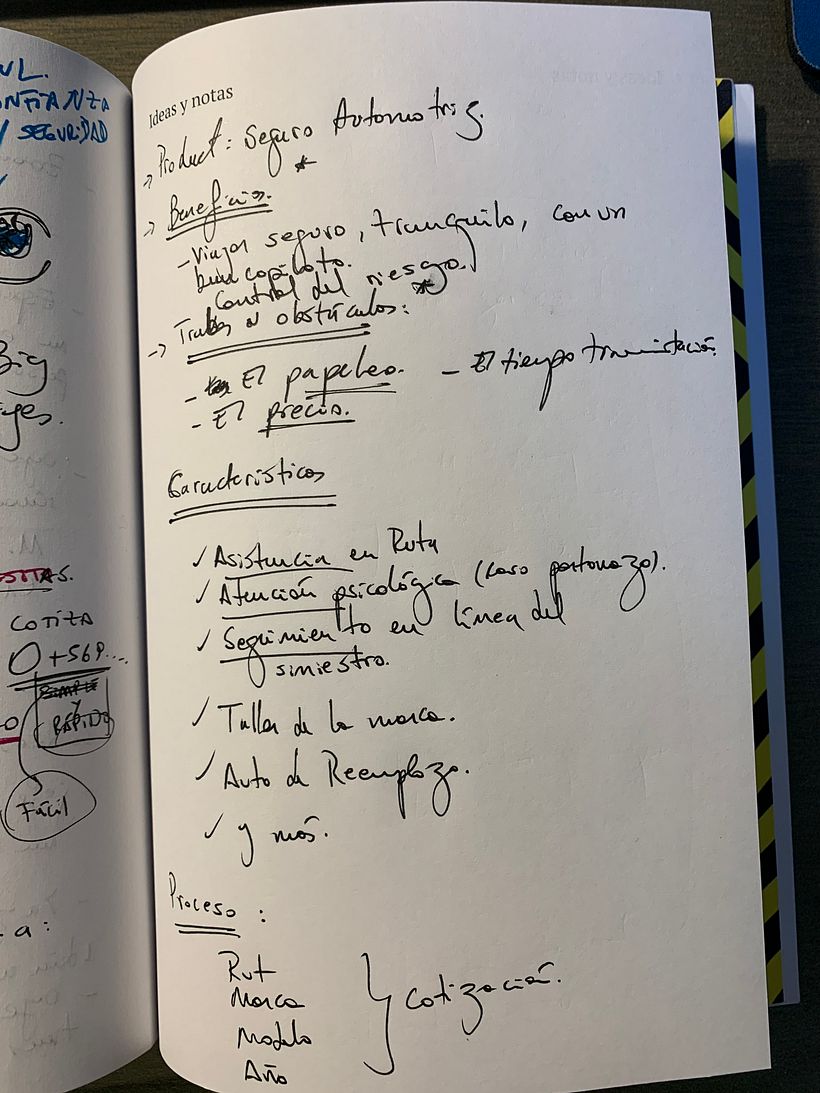 UL.
ONFIANZA
Y SEGURIDAD
Big
STAS.
COTIZA
+569....
SIMPLE
Y
RÁPIDO
Fácil
a:
Ideas y notas
→ Product: Seguro Automotriz.
→ Beneficios.
- Viajar seguro, tranquilo, con un
buen copiloto.
Control del riesgo.
→ Trabas u obstáculos:
- El papeleo.
- El tiempo tramitación.
- El precio.
Características
✓ Asistencia en Ruta
✓ Atención psicológica (caso portonazo).
✓ Seguimiento en línea del
siniestro.
✓ Taller de la marca.
✓ Auto de Reemplazo.
✓ y más.
Proceso:
Rut
Marca
Modelo
Año
} Cotización.